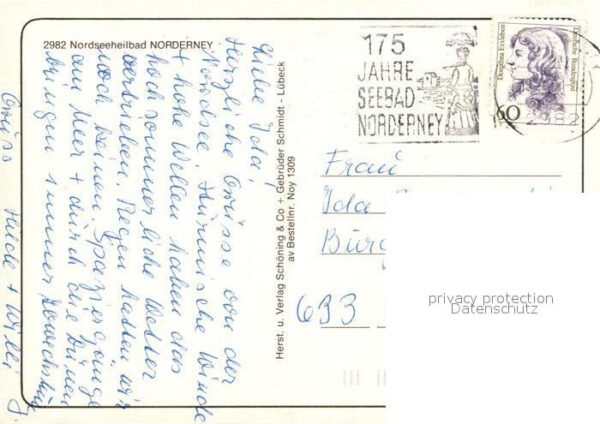 2982 Nordseeheilbad NORDERNEY
Liebe Ida!
Herzliche Grüsse von der
Nordsee. Stürmische Winde
+ hohe Wellen haben das
hochsommerliche Wetter
vertrieben. Regen hatten wir
noch keinen. Spaziergänge
am Meer + durch die Dünen
bringen immer Abwechslung
Gruss Hilde + Willi
Herst. u. Verlag Schöning & Co + Gebrüder Schmidt - Lübeck
av Bestellnr. Noy 1309
175
JAHRE
SEEBAD
NORDERNEY
Dorothea Erxleben
Deutsche Bundespost
60
2982
Frau
Ida
Bürg
633
privacy protection
Datenschutz